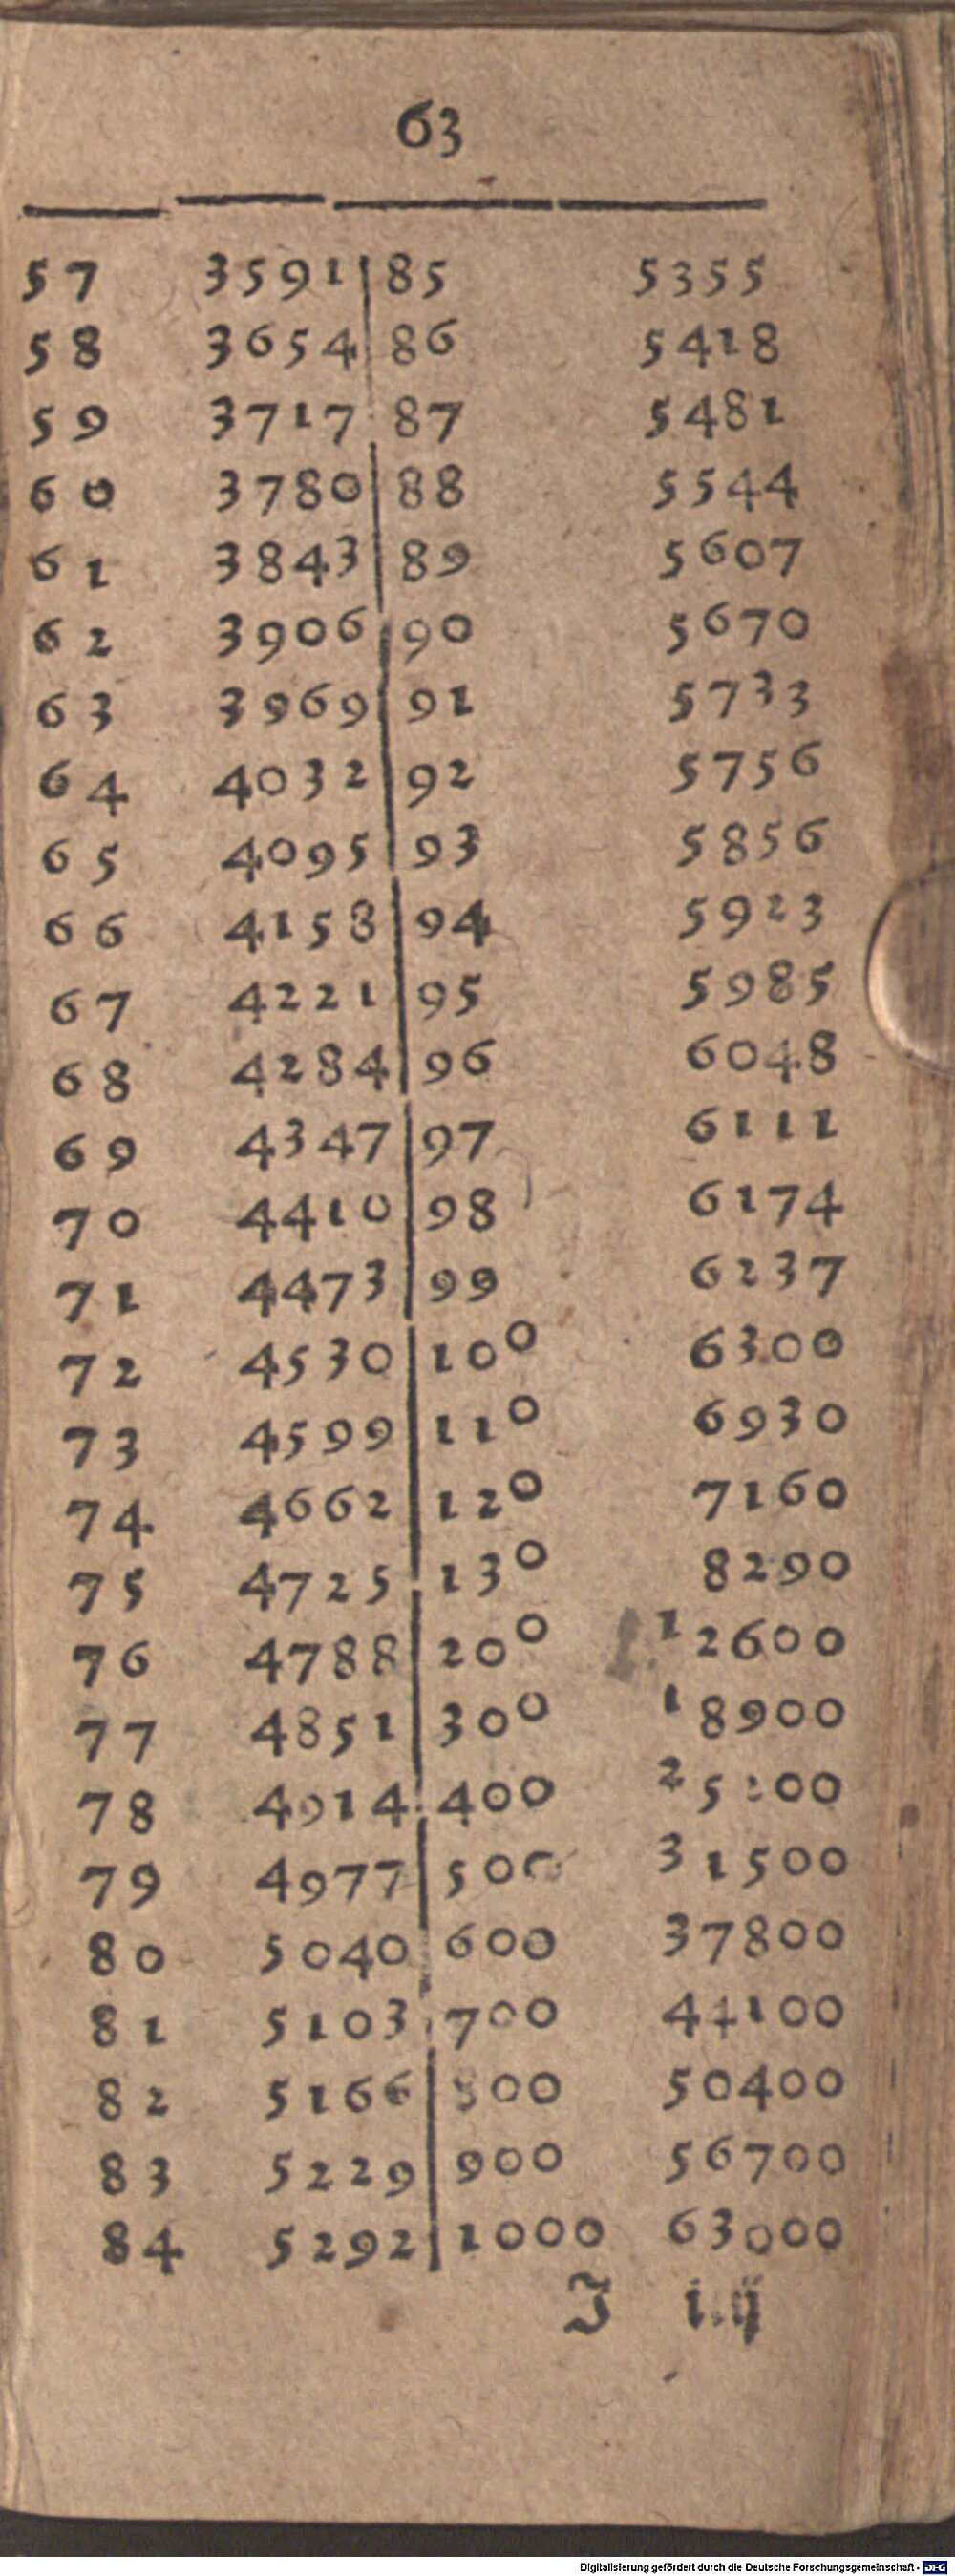 63
57 3591 85 5355
58 3654 86 5418
59 3717 87 5481
60 3780 88 5544
61 3843 89 5607
62 3906 90 5670
63 3969 91 5733
64 4032 92 5756
65 4095 93 5856
66 4158 94 5923
67 4221 95 5985
68 4284 96 6048
69 4347 97 6111
70 4410 98 6174
71 4473 99 6237
72 4530 100 6300
73 4599 110 6930
74 4662 120 7160
75 4725 130 8290
76 4788 200 12600
77 4851 300 18900
78 4914 400 25200
79 4977 500 31500
80 5040 600 37800
81 5103 700 44100
82 5166 800 50400
83 5229 900 56700
84 5292 1000 63000
J iij
Digitalisierung gefördert durch die Deutsche Forschungsgemeinschaft - DFG